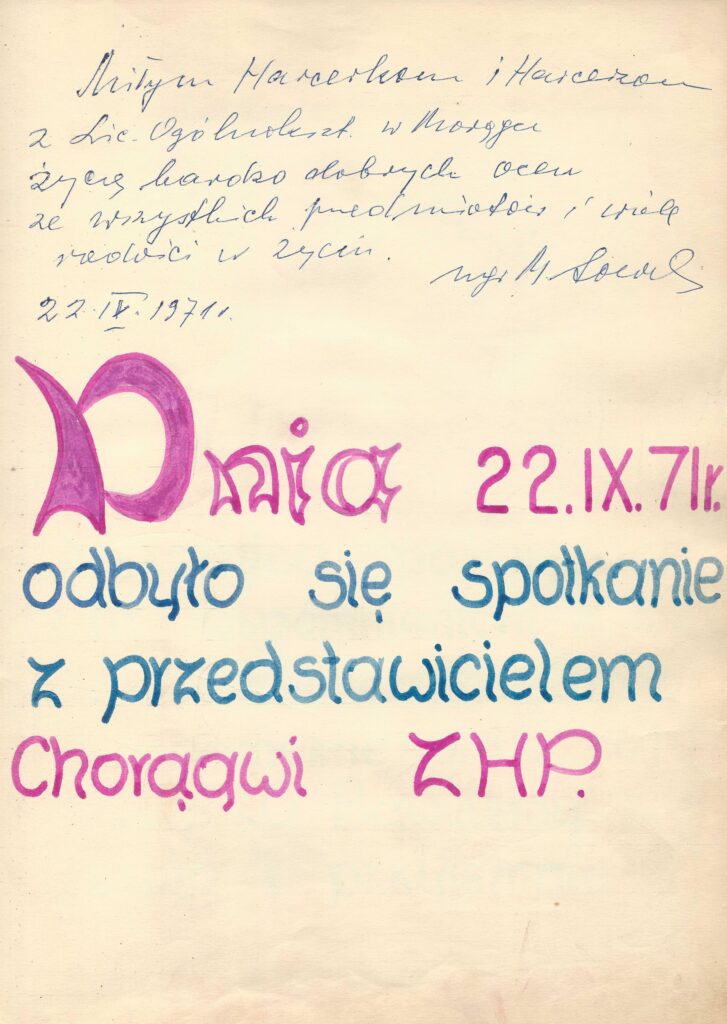 Miłym Harcerkom i Harcerzom
z Lic. Ogólnokszt. w Morągu
życzę bardzo dobrych ocen
ze wszystkich przedmiotów i wiele
radości w życiu.
mgr M.
22.IX.1971r.
Dnia 22.IX.71r.
odbyło się spotkanie
z przedstawicielem
Chorągwi ZHP.